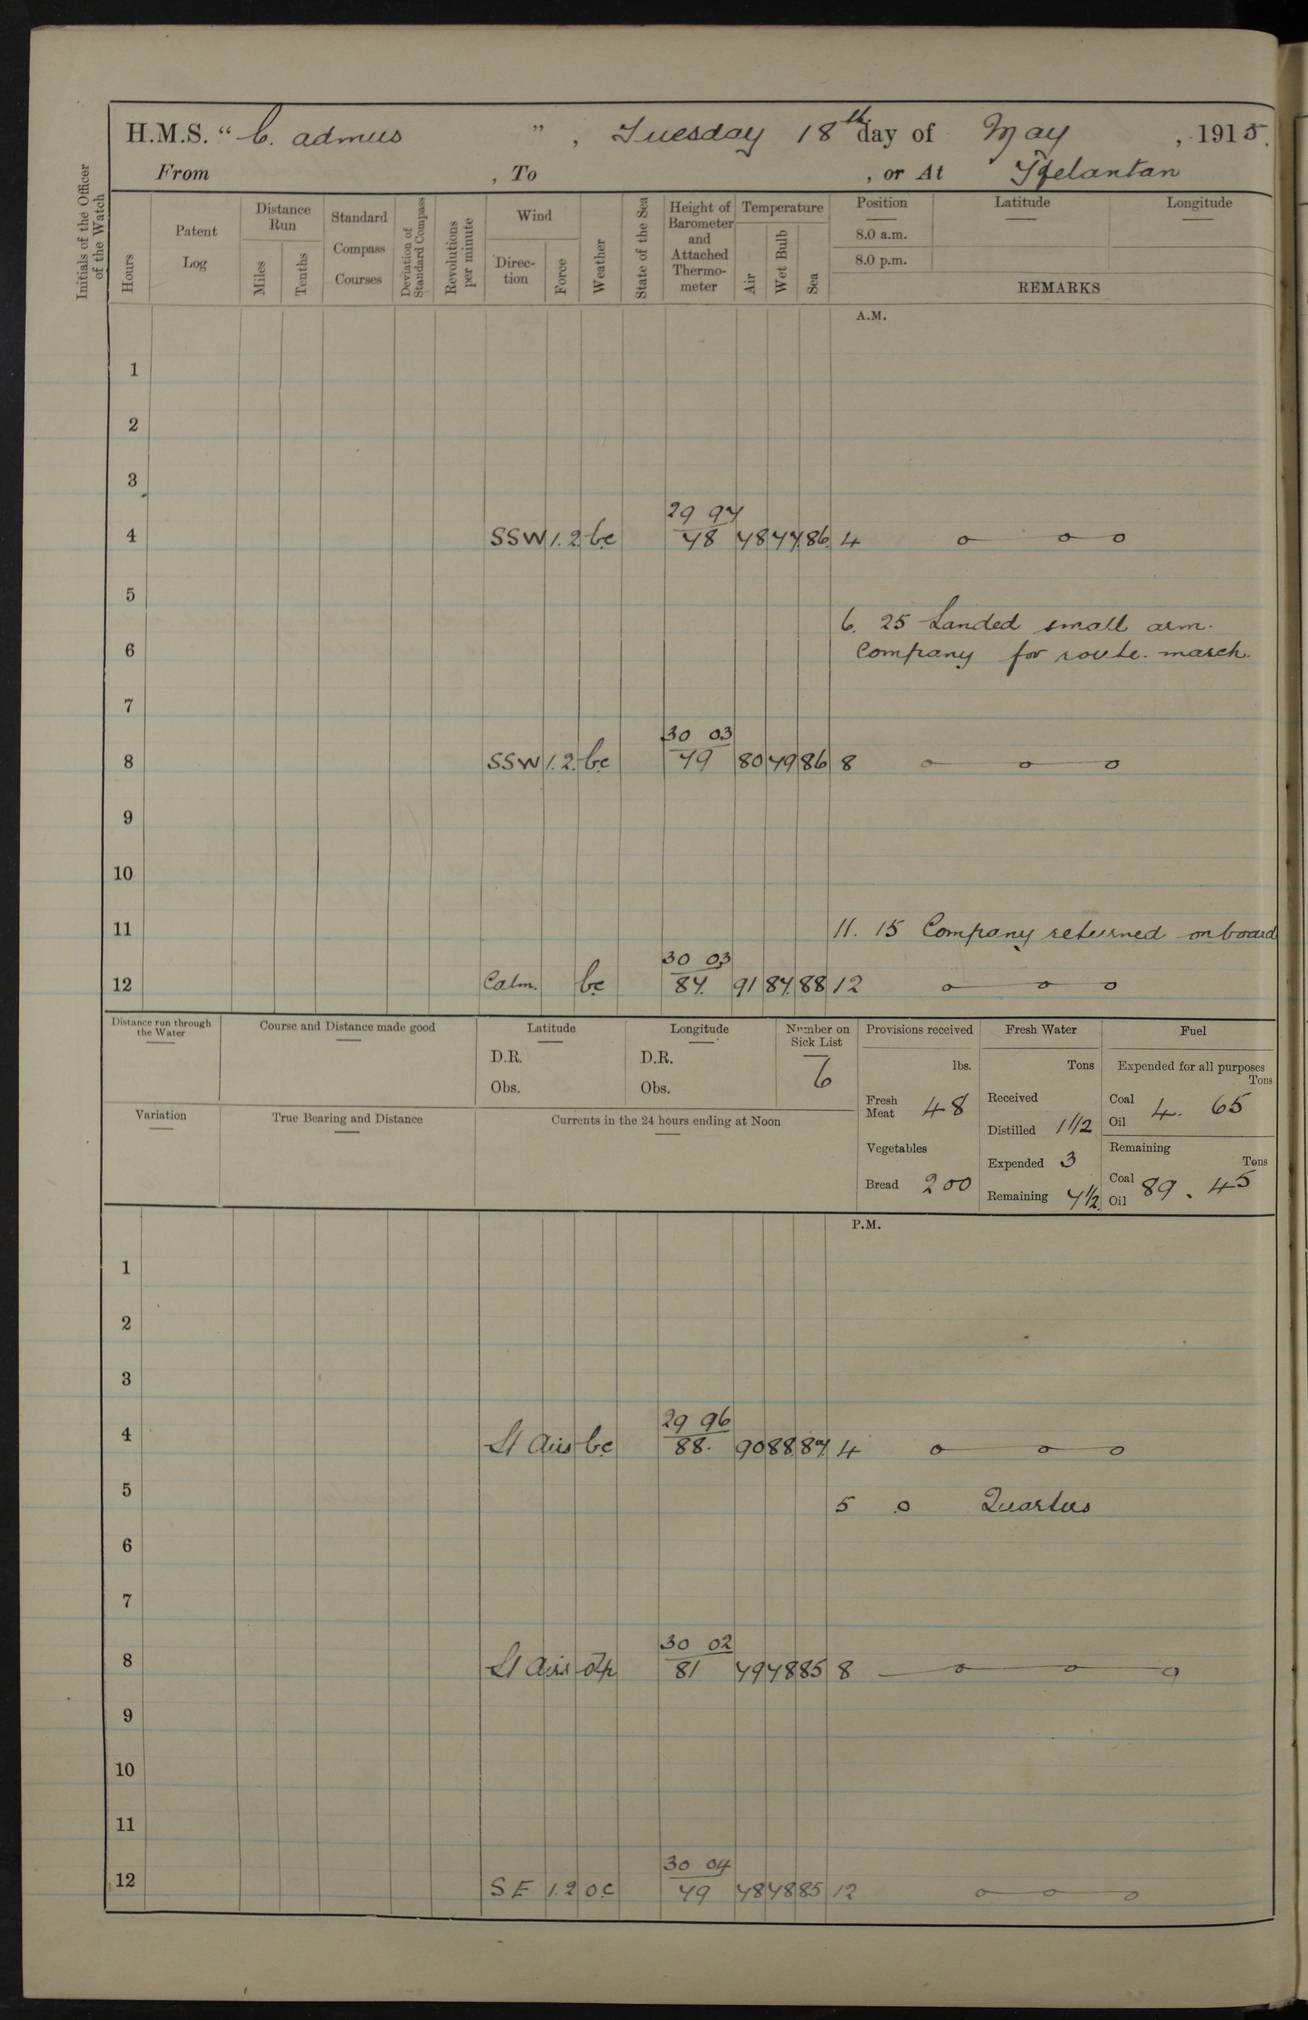 H.M.S. " Cadmus " , Tuesday 18th day of May , 1915.
From , To , or At Kelantan
Initials of the Officer of the Watch
Hours
Patent Log
Distance Run
Miles
Tenths
Standard Compass Courses
Deviation of Standard Compass
Revolutions per minute
Wind
Direc-tion
Force
Weather
State of the Sea
Height of Barometer and Attached Thermo-meter
Temperature
Air
Wet Bulb
Sea
Position
8.0 a.m.
8.0 p.m.
Latitude
Longitude
REMARKS
A.M.
1
2
3
29 97
4 SSW 1.2 b.c 78 78 77 86 4 o o o
5
6. 25 Landed small arm.
6 Company for route. march.
7
30 03
8 SSW 1.2. b.c 79 80 79 86 8 o o o
9
10
11 11. 15 Company returned on board
30 03
12 Calm. b.c 87. 91 87. 88 12 o o o
Distance run through the Water
Course and Distance made good
Latitude
D.R.
Obs.
Longitude
D.R.
Obs.
Number on Sick List
6
Variation
True Bearing and Distance
Currents in the 24 hours ending at Noon
Provisions received
lbs.
Fresh Meat 48
Vegetables
Bread 200
Fresh Water
Tons
Received
Distilled 1 1/2
Expended 3
Remaining 7 1/2
Fuel
Expended for all purposes
Tons
Coal
Oil 4. 65
Remaining
Tons
Coal
Oil 89. 45
P.M.
1
2
3
29 96
4 Lt Airs b.c 88. 90 88 87. 4 o o o
5 5 o Quarters
6
7
30 02
8 Lt Airs 81 79 78 85 8 o o o
9
10
11
30 04
12 SE 1.2 o.c 79 78 78 85 12 o o o